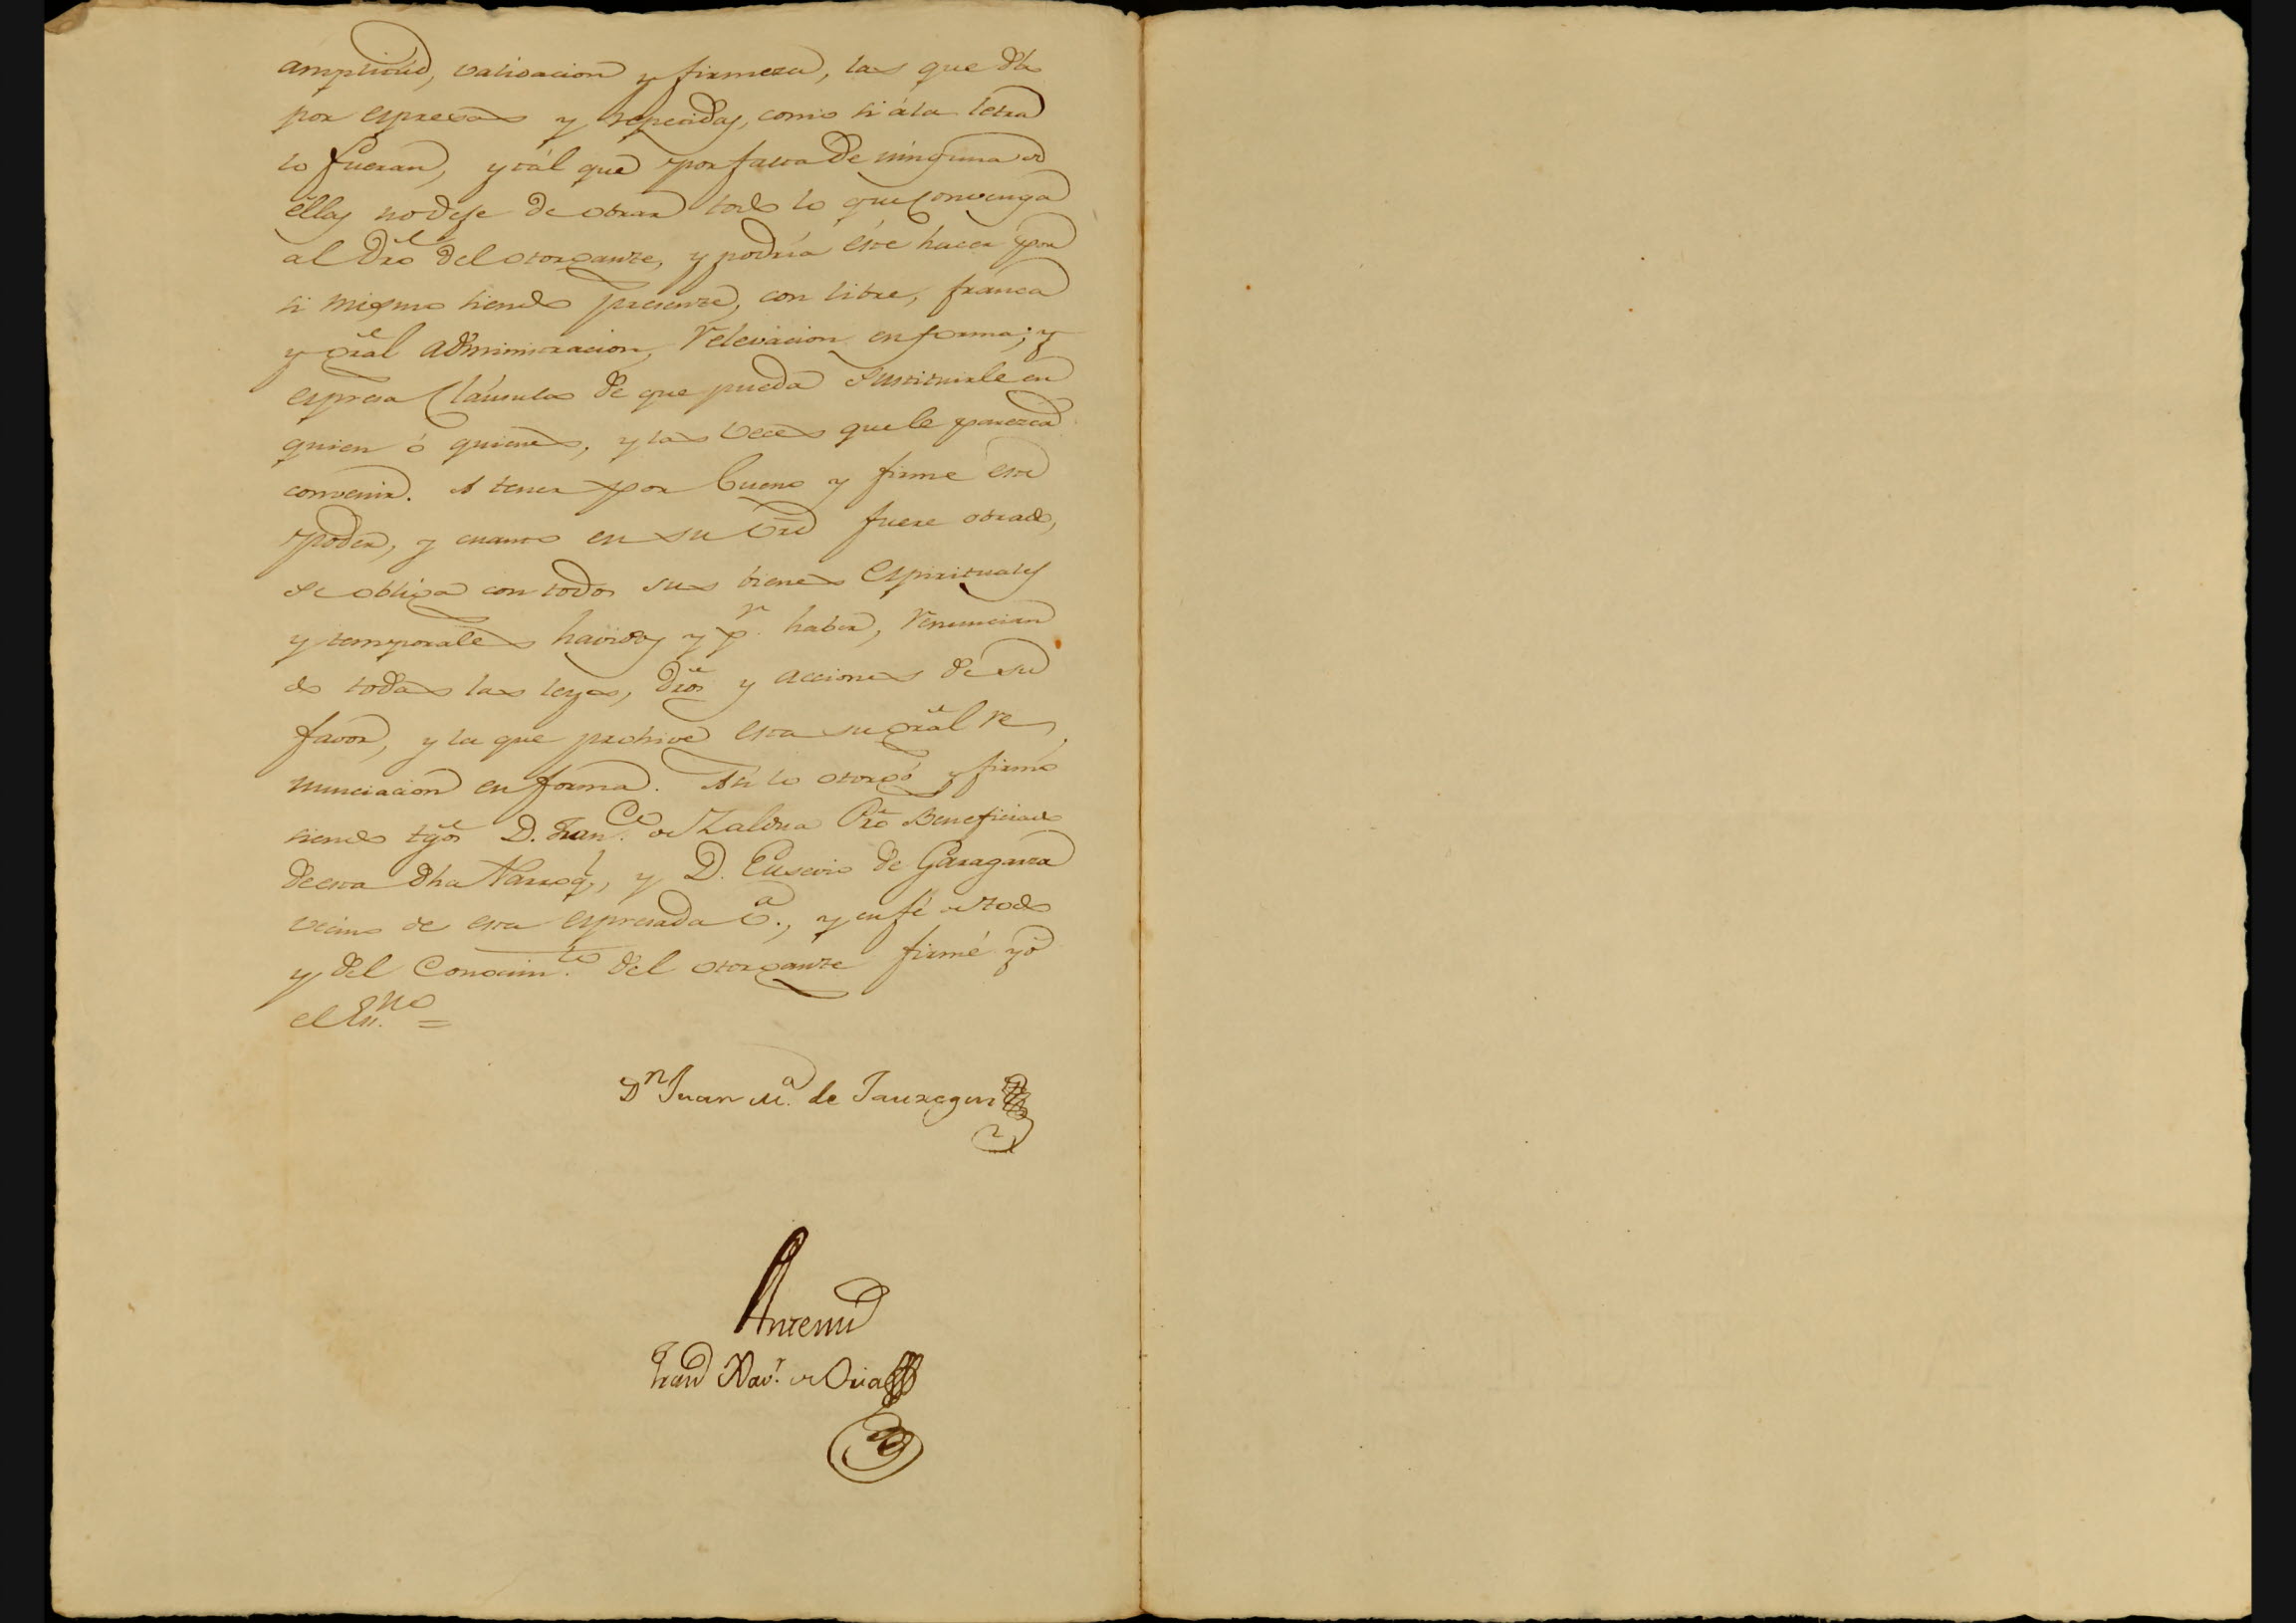 amplitud, validacion y firmeza, las que dá
por espresas y repetidas, como si á la letra
lo fueran, y tál que por falta de ninguna de
éllas no deje de obrar todo lo que convenga
al Drõ del otorgante, y podria éste hacer por
si mismo siendo presente, con libre, franca
y gral̃ administracion, relevacion en forma; y
espresa Cláusula de que pueda sustituirle en
quien ó quienes, y las veces que le parezca
convenir. A tener por bueno y firme este
poder, y cuanto en su vrd̃ fuere obrado,
se obliga con todos sus bienes Espirituales
y temporales havidos y pr. haber, renuncian
do todas las leyes, drõs y acciones de su
favor, y la que prohive esta su gral̃ re,
nunciacion en forma. Asi lo otorgó y firmó
siendo tgõs D. Franco. de Zaldua Prõ Beneficiado
de esta dha Parroq̃, y D. Eusevio de Garagarza
vecino de esta espresada va., y en fé de todo
y del Conocimto. del otorgante firmé yó
el Esno. =
Dn Juan Ma. de Jauregui
Antemi
Fran Xavr. de Oria